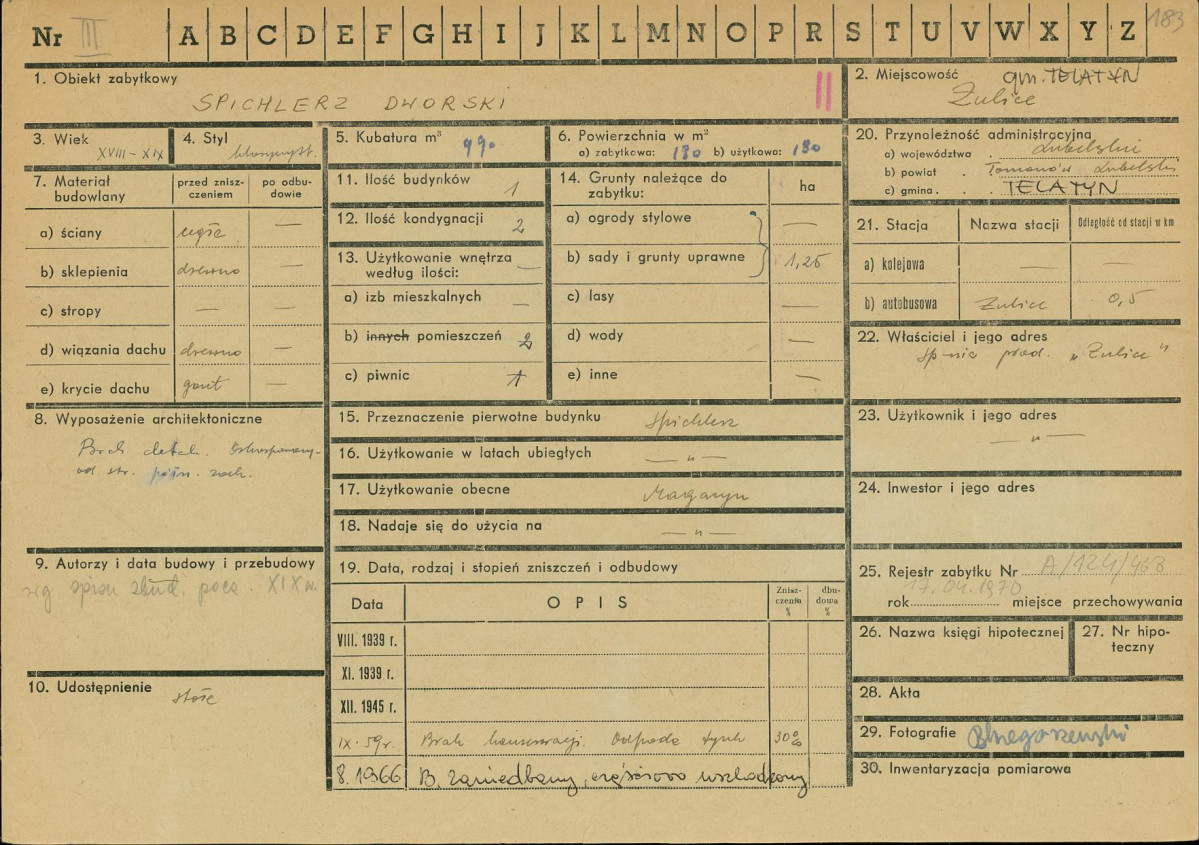 Nr III A B C D E F G H I J K L M N O P R S T U V W X Y Z 183
1. Obiekt zabytkowy
SPICHLERZ DWORSKI II
2. Miejscowość gm. TELATYN
Żulice
3. Wiek
XVIII – XIX
4. Styl
5. Kubatura m³ 990
6. Powierzchnia w m²
a) zabytkowa: 180 b) użytkowa: 180
20. Przynależność administracyjna
a) województwo . Lubelskie
b) powiat . Tomaszów Lubelski
c) gmina . TELATYN
7. Materiał budowlany
przed znisz-
czeniem
po odbu-
dowie
a) ściany cegła —
b) sklepienia drewno —
c) stropy — —
d) wiązania dachu drewno —
e) krycie dachu gont —
11. Ilość budynków 1
12. Ilość kondygnacji 2
13. Użytkowanie wnętrza
według ilości: —
a) izb mieszkalnych —
b) innych pomieszczeń 2
c) piwnic 1
14. Grunty należące do
zabytku:
ha
a) ogrody stylowe —
b) sady i grunty uprawne 1,25
c) lasy —
d) wody —
e) inne —
21. Stacja Nazwa stacji Odległość od stacji w km
a) kolejowa — —
b) autobusowa Żulice 0,5
22. Właściciel i jego adres
Sp-nia prod. „Żulice"
8. Wyposażenie architektoniczne
Brak detal.
od str. półn. zach.
15. Przeznaczenie pierwotne budynku Spichlerz
16. Użytkowanie w latach ubiegłych — „ —
17. Użytkowanie obecne Magazyn
18. Nadaje się do użycia na — „ —
23. Użytkownik i jego adres
— „ —
24. Inwestor i jego adres
9. Autorzy i data budowy i przebudowy
wg spisu zbud. pocz. XIX w.
10. Udostępnienie
19. Data, rodzaj i stopień zniszczeń i odbudowy
Data OPIS Znisz-
czenia
%
dbu-
dowa
%
VIII. 1939 r.
XI. 1939 r.
XII. 1945 r.
IX. 59 r. Brak konserwacji. Odpada tynk 30%
8.1966 B. zaniedbany, częściowo uszkodzony
25. Rejestr zabytku Nr A/124/468
17.04.1970
rok miejsce przechowywania
26. Nazwa księgi hipotecznej
27. Nr hipo-
teczny
28. Akta
29. Fotografie
30. Inwentaryzacja pomiarowa